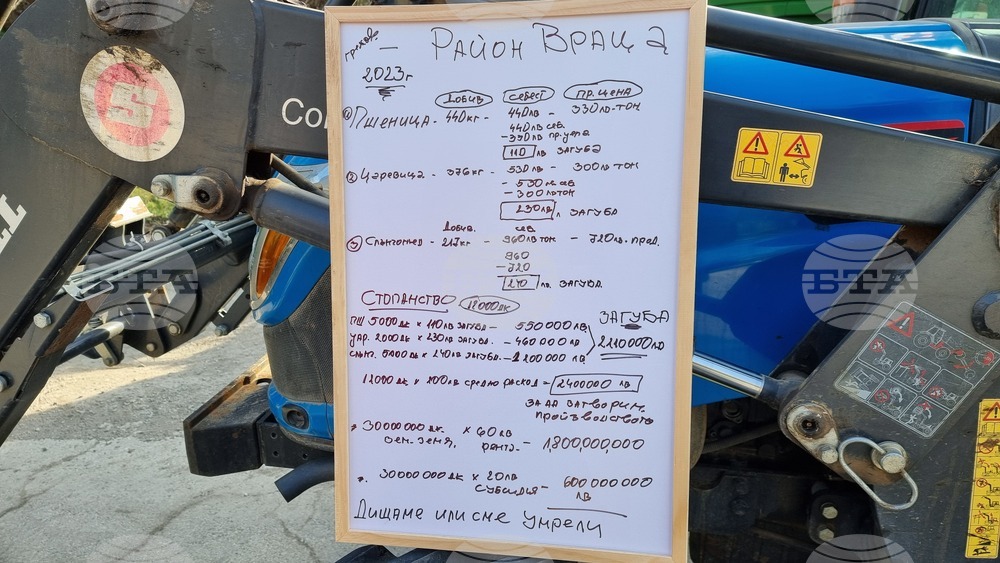 РАЙОН ВРАЦА
2023г
ДОБИВ СЕБЕСТ ПР. ЦЕНА
① ПШЕНИЦА - 440кг - 440лв - 330лв-тон
440лв себ.
-330лв пр.цена
110 лв ЗАГУБА
② ЦАРЕВИЦА - 376кг - 530лв - 300лв тон
- 530лв себ
- 300лвтон
230лв ЗАГУБА
ДОБИВ. СЕБ.
③ СЛЪНЧОГЛЕД - 217кг - 960лв тон - 720лв. прод.
960
-720
240 лв. ЗАГУБА
СТОПАНСТВО 12000дк
ПШ 5000дк x 110лв ЗАГУБА - 550000лв ЗАГУБА
цар. 2000дк x 230лв ЗАГУБ. - 460000лв 2210000лв
слън. 5000дк x 240лв ЗАГУБА - 1200000лв
12000дк x 200лв средно разход = 2400000 лв
ЗА ДА ЗАТВОРИМ
производството
30000000дк x 60лв
зем. земя. рента - 1,800,000,000
30000000дк x 20лв
субсидия - 600000000
лв
Дишаме или сме умрели
Con
БТА
БТА